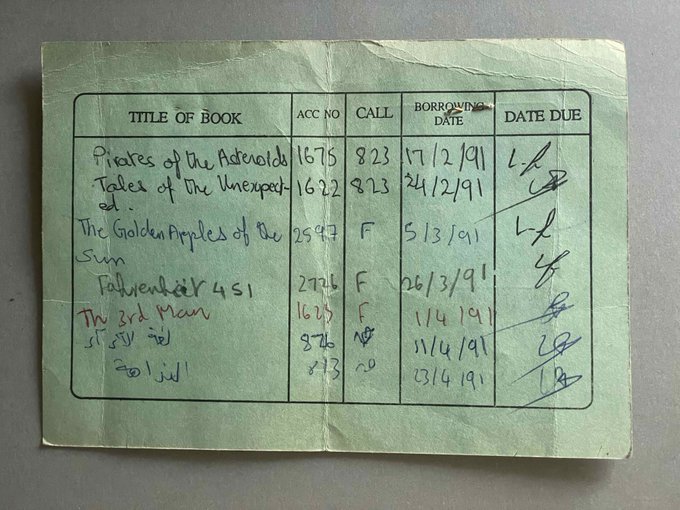 TITLE OF BOOK ACC NO CALL BORROWING DATE DATE DUE
Pirates of the Asteroids 1675 823 17/2/91
Tales of the Unexpect- 1622 823 24/2/91
ed.
The Golden Apples of the 2597 F 5/3/91
Sun
Fahrenheit 451 2726 F 26/3/91
Th 3rd Man 1625 F 1/4/91
لغة الآي آي 876 11/4/91
813 23/4/91